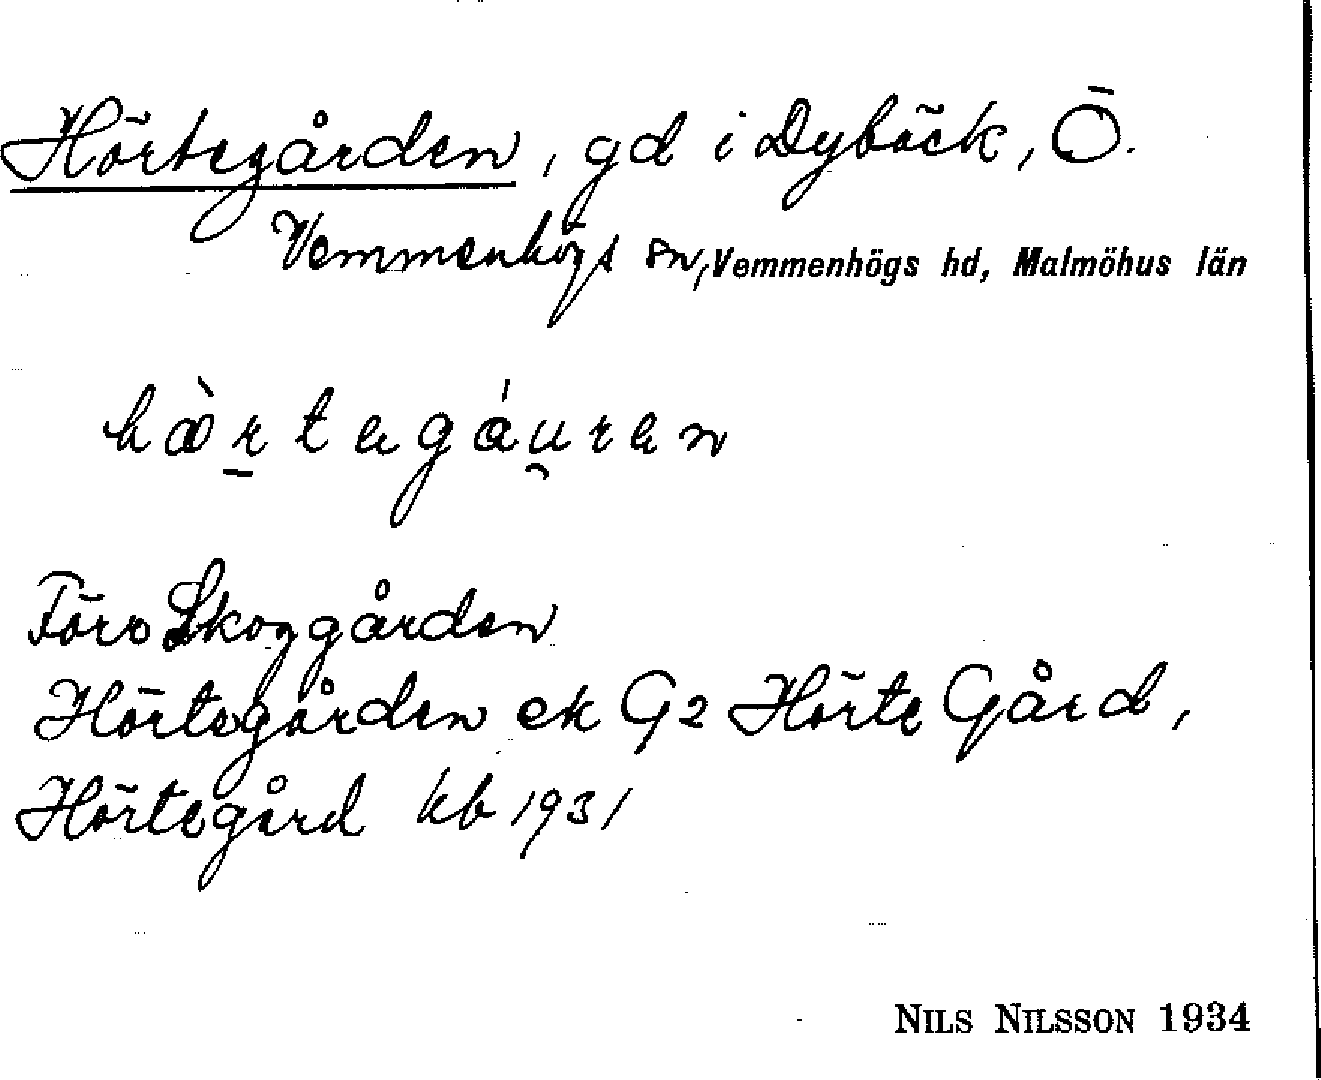 Hörtegården, gd i Dybäck, Ö.
Vemmenhögs sn, Vemmenhögs hd, Malmöhus län
hæ̀r̠tegáu̯ren
Förr Skoggården
Hörtegården ek G2 Hörte Gård,
Hörtegård kb 1931
NILS NILSSON 1934